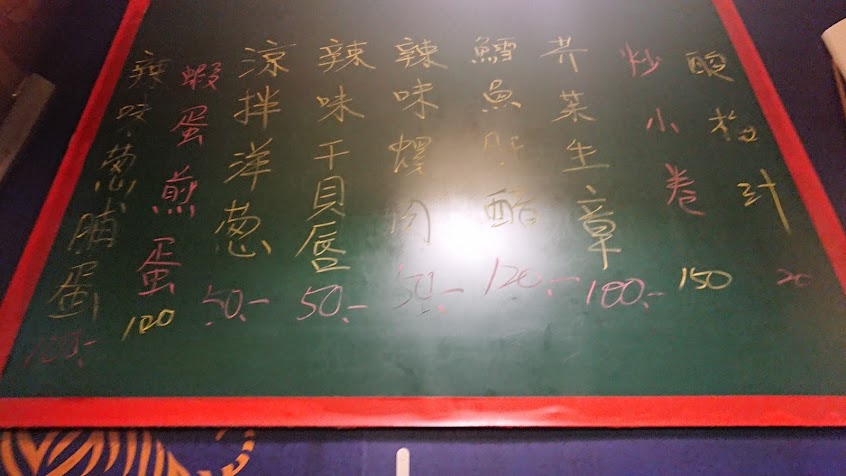 酸梅汁 20
炒小卷 150
芥菜生章 100.-
鱈魚肝酷 120.-
辣味螺肉 50.-
辣味干貝唇 50.-
涼拌洋葱 50.-
蝦蛋煎蛋 120
辣味葱脯蛋 100.-